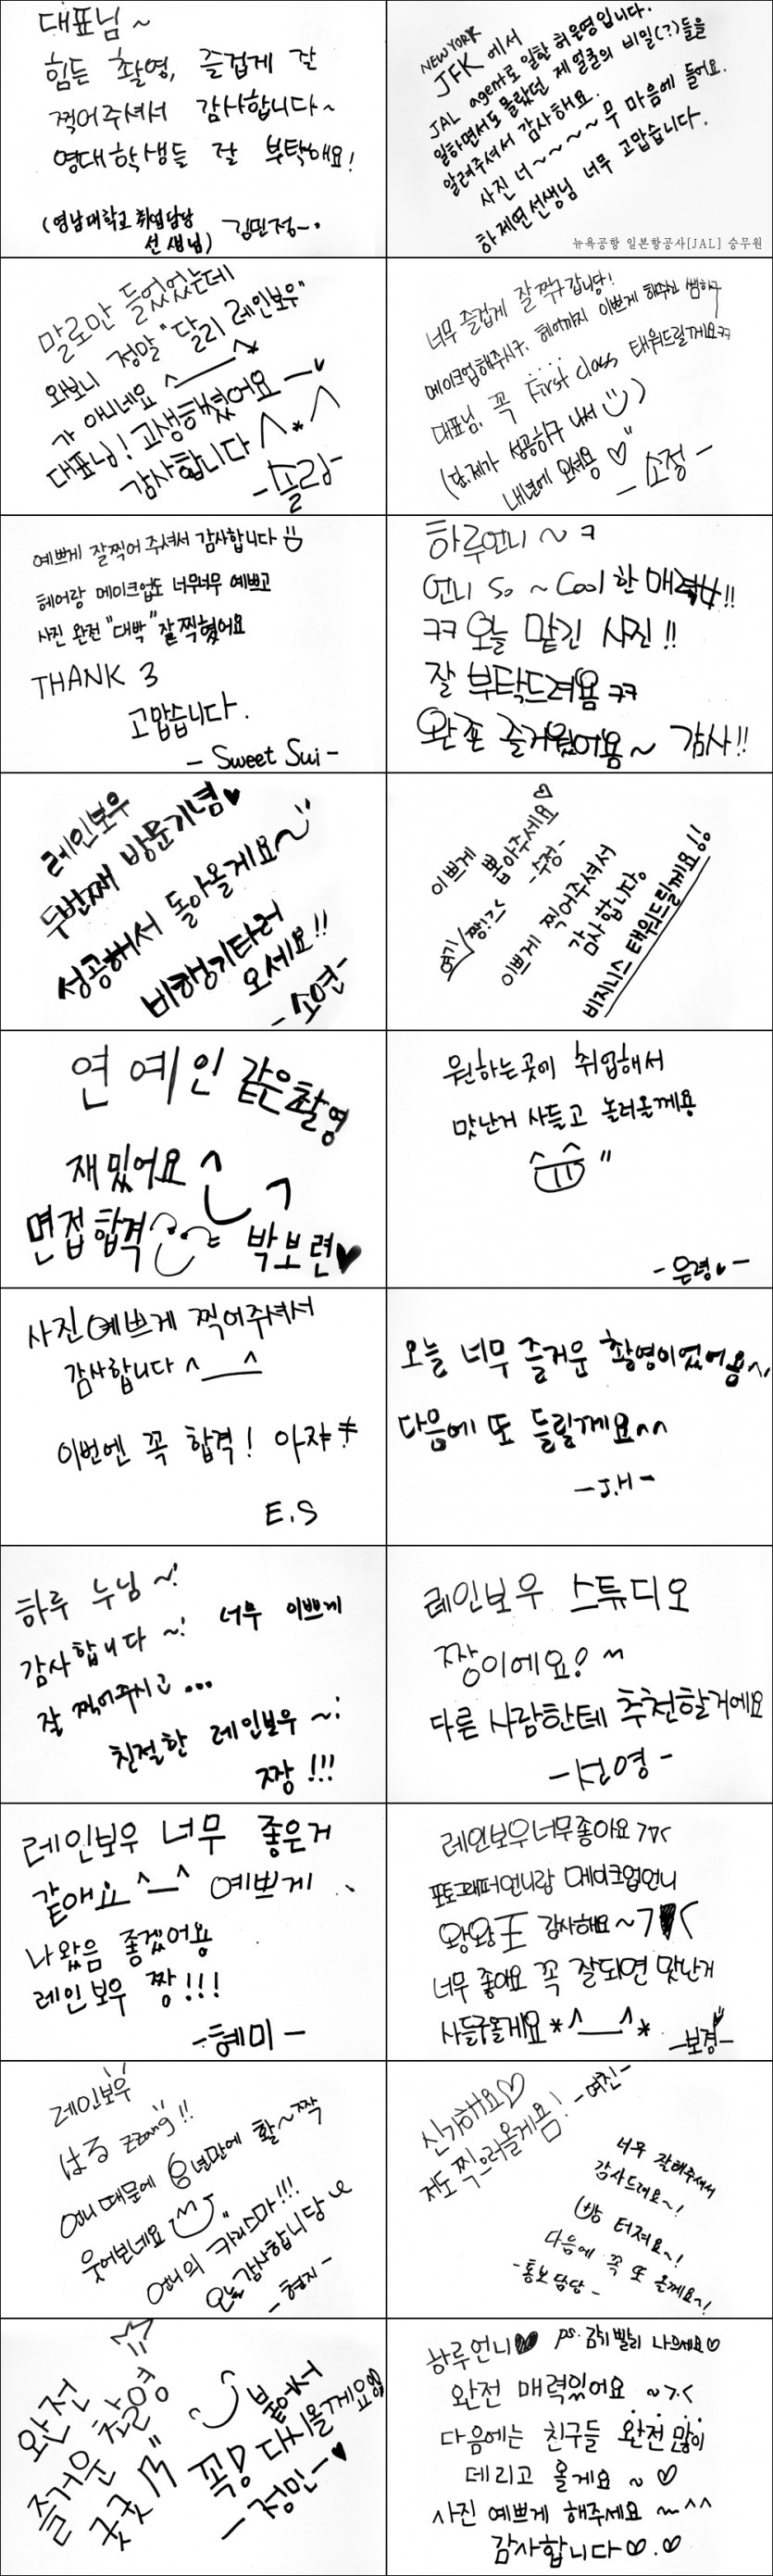 대표님~
힘든 촬영, 즐겁게 잘
찍어주셔서 감사합니다~
영대학생들 잘 부탁해요!
(영남대학교 취업담당
선생님) 김민정~.
NEW YORK
JFK 에서
JAL agent로 일한 허은영입니다.
일하면서도 몰랐던 제 얼굴의 비밀(?)들을
알려주셔서 감사해요.
사진 너~~~~무 마음에 들어요.
하제연선생님 너무 고맙습니다.
뉴욕공항 일본항공사[JAL] 승무원
말로만 들었었는데
와보니 정말 "달리 레인보우"
가 아니네요 ^____^*
대표님! 고생하셨어요 ㅡ♥
감사합니다 ^*^
-솔람-
너무 즐겁게 잘 찍구 갑니당!
메이크업해주시구, 헤어까지 이쁘게 해주신 쌤하구
대표님, 꼭 First class 태워드릴께요ㅋㅋ
(단, 제가 성공하구 나서 )
내년에 오셔용 ♡"
- 소정 -
예쁘게 잘찍어 주셔서 감사합니다
헤어랑 메이크업도 너무너무 예쁘고
사진 완전 "대박" 잘 찍혔어요
THANK 3
고맙습니다.
- Sweet Sui -
하루언니 ~ ㅋ
언니 So ~ Cool 한 매력녀!!
ㅋㅋ 오늘 맡긴 사진!!
잘 부탁드려욤 ㅋㅋ
완죤 즐거웠어욤~ 감사!!
레인보우
두번째 방문기념♥
성공해서 돌아올게요~
비행기타러
오세요!!
-소연-
이쁘게 뽑아주세요♡
-수정-
여기 짱!><
이쁘게 찍어주셔서
감사합니다.
비지니스 태워드릴께요!!
연예인 같은촬영
재밌어요
면접합격 박보련♥
원하는곳에 취업해서
맛난거 사들고 놀러올께용
"
-은령♥-
사진 예쁘게 찍어주셔서
감사합니다 ^___^
이번엔 꼭 합격! 아쟈
E.S
오늘 너무 즐거운 촬영이었어용^^
다음에 또 들릴께요^^
-J.H-
하루 누님 ~!
감사합니다 ~! 너무 이쁘게
잘 찍어주시고...
친절한 레인보우 ~!
짱!!!
레인보우 스튜디오
짱이에요! ^^
다른 사람한테 추천할거에요
-선영-
레인보우 너무 좋은거
같애요 ^__^ 예쁘게
나왔음 좋겠어용
레인보우 짱!!!
-혜미-
레인보우너무좋아요 >▽<
포토그래퍼언니랑 메이크업언니
왕왕王 감사해요~>♥<
너무 좋아요 꼭 잘되면 맛난거
사들구올게요 *^___^*
-보경-
레인보우
はる zzang!!
언니 때문에 8년만에 활~짝
웃어보네요
언니의 카리스마!!!
오늘감사합니당
-현지-
신기해요♡
저도 찍으러올게욤! -여진-
너무 잘해주셔서
감사드려요~!
빵 터져요~!
다음에 꼭 또 올께요~!
-홍보담당-
완전
즐거운 촬영
굿굿
붙어서
꼭! 다시올게요
-정민-♥
하루언니♥ ps. 감기 빨리 나으세요♡
완전 매력있어요 ~>.<
다음에는 친구들 완전 많이
데리고 올게요 ~ ♡
사진 예쁘게 해주세요 ~^^
감사합니다♡.♡